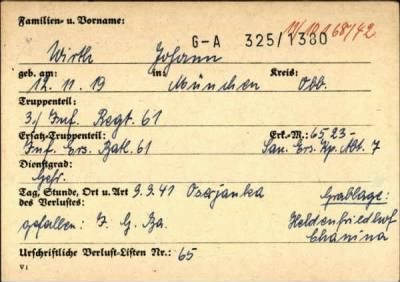 Familien- u. Vorname:
G-A 325/1380 11/10168/42
Wirth Johann
geb. am: in: Kreis:
12. 11. 19 München Obb.
Truppenteil:
3./ Inf. Regt. 61
Ersatz-Truppenteil: Erk.-M.: 6523-
Inf. Ers. Batl. 61 San. Ers. Kp. Abt. 7
Dienstgrad:
Gefr.
Tag, Stunde, Ort u. Art 9.9.41 Osarjanka Grablage:
des Verlustes:
gefallen: I. G. Ba. Heldenfriedhof
Chanina
Urschriftliche Verlust-Listen Nr.: 65
V1